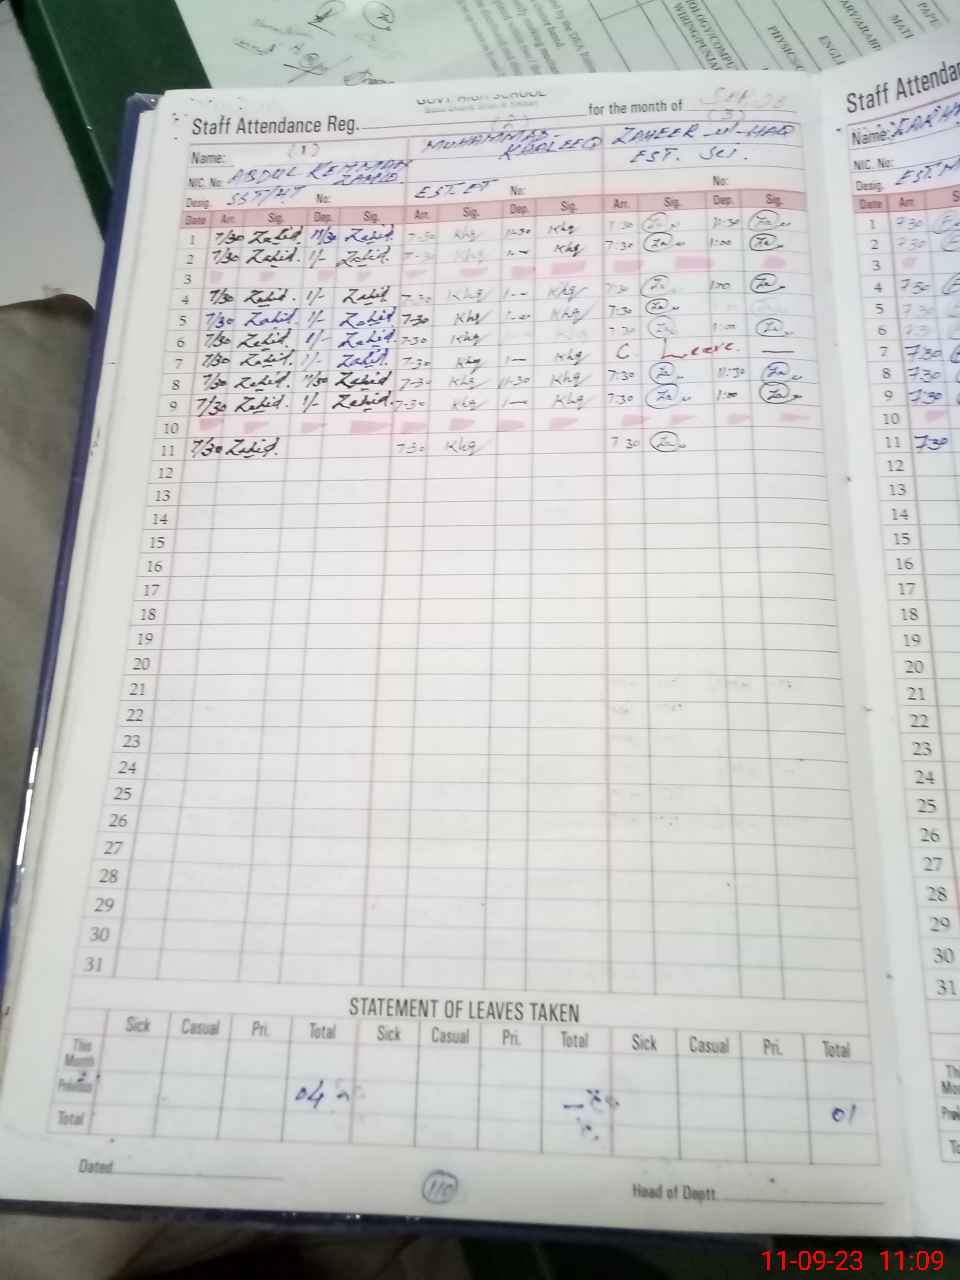 GOVT HIGH SCHOOL
Staff Attendance Reg. for the month of
Name: (1) (2) (3)
ABDUL REHMAN ZAHID MUHAMMAD KHALEEQ ZAHEER-ul-HAQ
NIC. No:
Desig. SST/HT No: EST.ET No: EST. Sci. No:
Date Arr. Sig. Dep. Sig. Arr. Sig. Dep. Sig. Arr. Sig. Dep. Sig.
1 7/30 Zahid. 11/30 Zahid. 7-30 Khq 11-30 Khq 7:30 Za 11:30 Za
2 7/30 Zahid. 1/- Zahid. 7-30 Khq 1-- Khq 7:30 Za 1:00 Za
3
4 7/30 Zahid. 1/- Zahid 7-30 Khq 1-- Khq 7:30 Za 1:00 Za
5 7/30 Zahid. 1/- Zahid 7-30 Khq 1-- Khq 7:30 Za
6 7/30 Zahid. 1/- Zahid. 7-30 Khq 7:30 Za 1:00 Za
7 7/30 Zahid. 1/- Zahid. 7-30 Khq 1-- Khq C. Leave.
8 7/30 Zahid. 11/30 Zahid 7-30 Khq 11-30 Khq 7:30 Za 11:30 Za
9 7/30 Zahid. 1/- Zahid. 7-30 Khq 1-- Khq 7:30 Za 1:00 Za
10
11 7/30 Zahid. 7-30 Khq 7 30 Za
12
13
14
15
16
17
18
19
20
21
22
23
24
25
26
27
28
29
30
31
STATEMENT OF LEAVES TAKEN
Sick Casual Pri. Total Sick Casual Pri. Total Sick Casual Pri. Total
This Month
Previous 04 01
Total
Dated
110
Head of Deptt.
Staff Attendan
Name:
NIC. No:
Desig. EST.M
Date Arr.
1 7:30
2 7:30
3
4 7:30
5 7:30
6 7:30
7 7:30
8 7:30
9 7:30
10
11 7:30
12
13
14
15
16
17
18
19
20
21
22
23
24
25
26
27
28
29
30
31
11-09-23 11:09